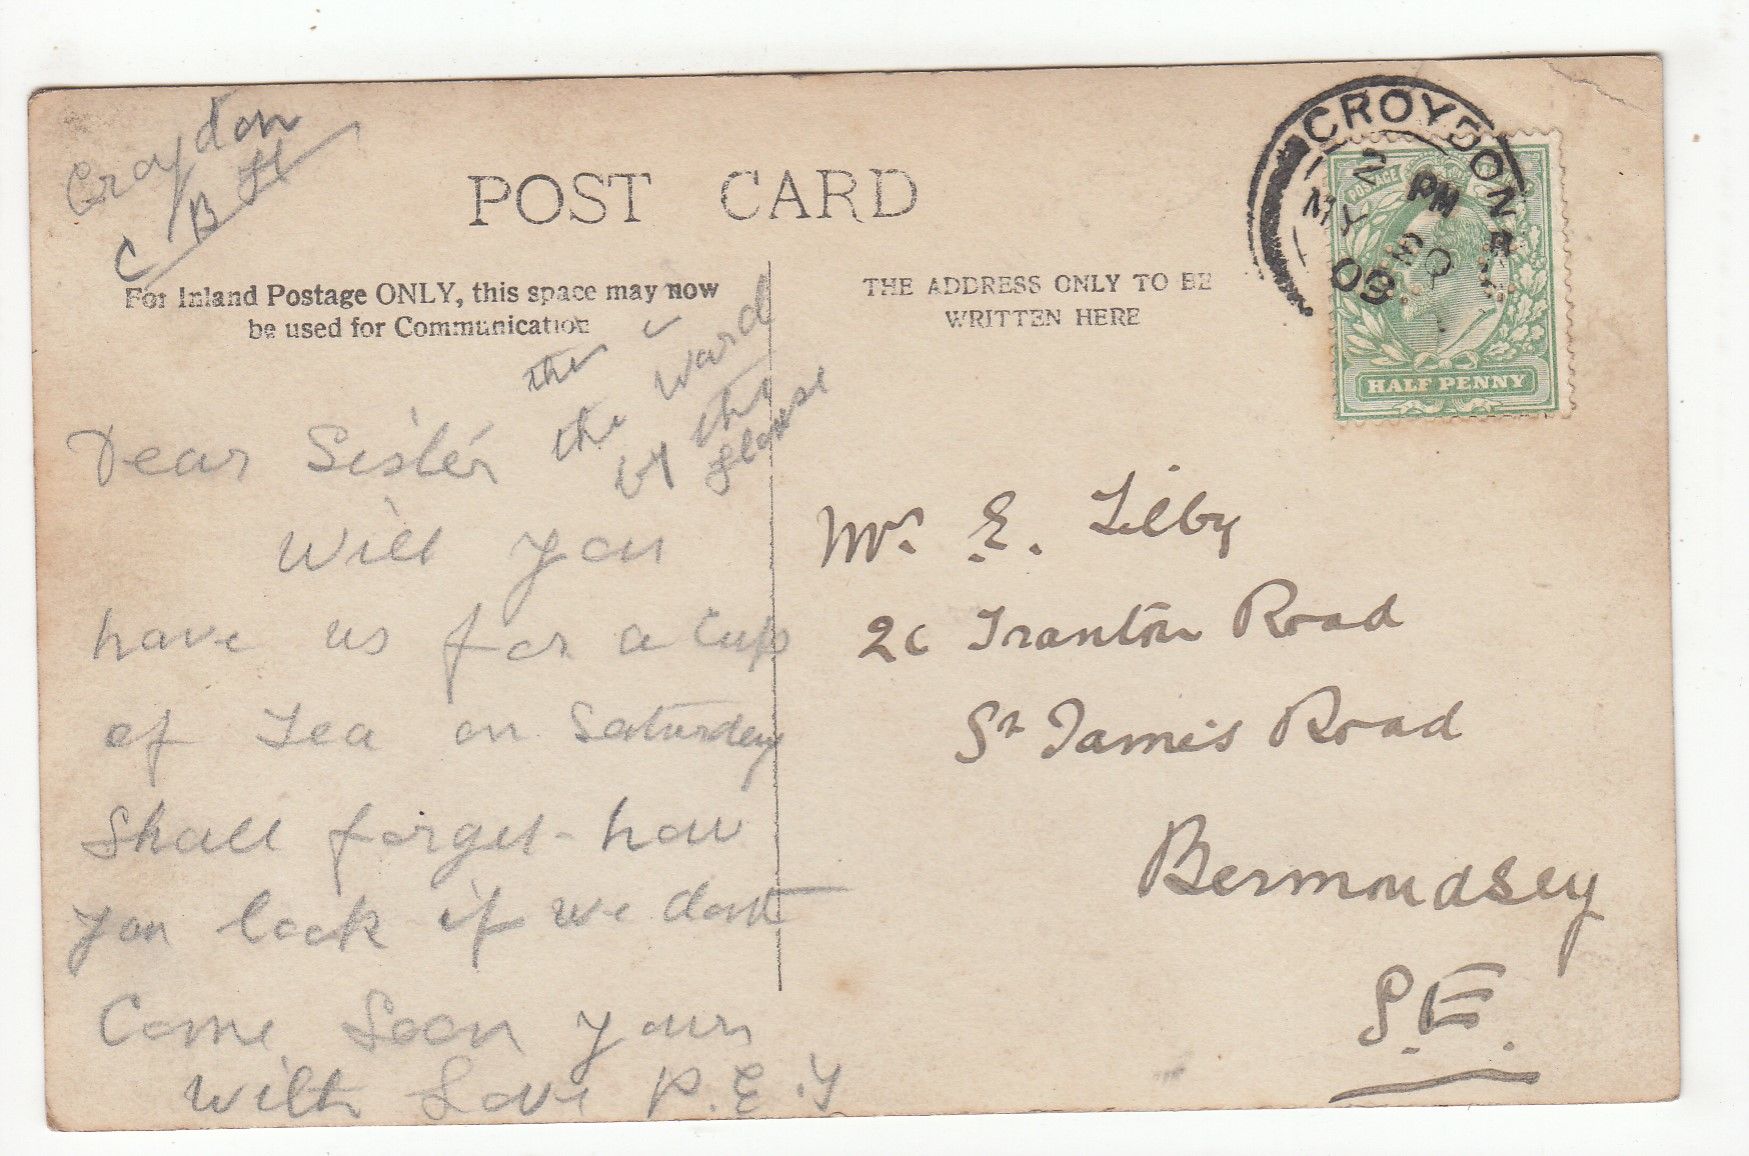 Croydon
C B H
POST CARD
For Inland Postage ONLY, this space may now
be used for Communication
THE ADDRESS ONLY TO BE
WRITTEN HERE
CROYDON
2 PM
MY
09
POSTAGE
HALF PENNY
the
the ward
by the
Dear Sister
Will you
have us for a Cup
of Tea on Saturday
Shall forget how
you look if we dont
Come Soon yours
With Love P.E.Y
Mrs. E. Lilby
26 Tranton Road
St James Road
Bermondsey
S.E.